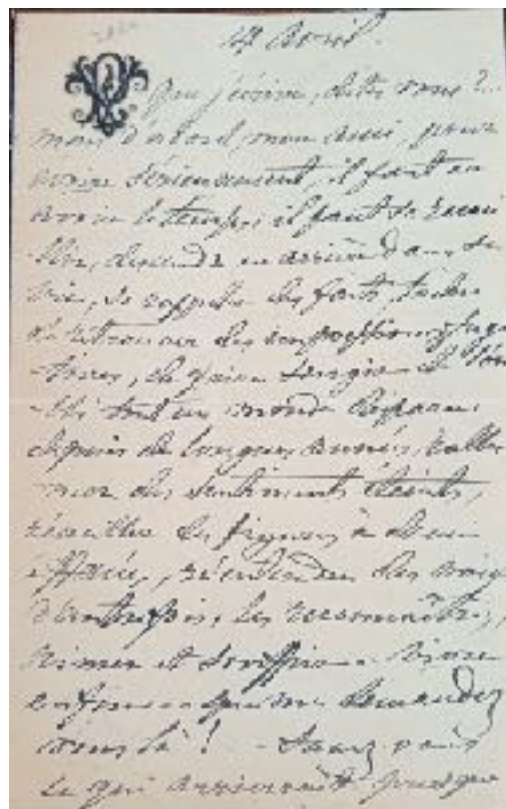 Avril.
Que j'écrive, dites vous?..
mais d'abord, mon ami, pour
écrire sérieusement, il faut en
avoir le temps, il faut se recueil
-lir, descendre en arrière dans sa
vie, se rappeler les faits, tâcher
de retrouver des impressions fugi
-tives,
tout un monde disparu
depuis de longues années, rallu
-mer des sentiments éteints,
réveiller les figures à demi
effacées, réentendre des voix
d'autrefois, les reconnaître,
aimer et souffrir - vivre
enfin - que me demandez
vous là! - Savez vous
ce qui arriverait